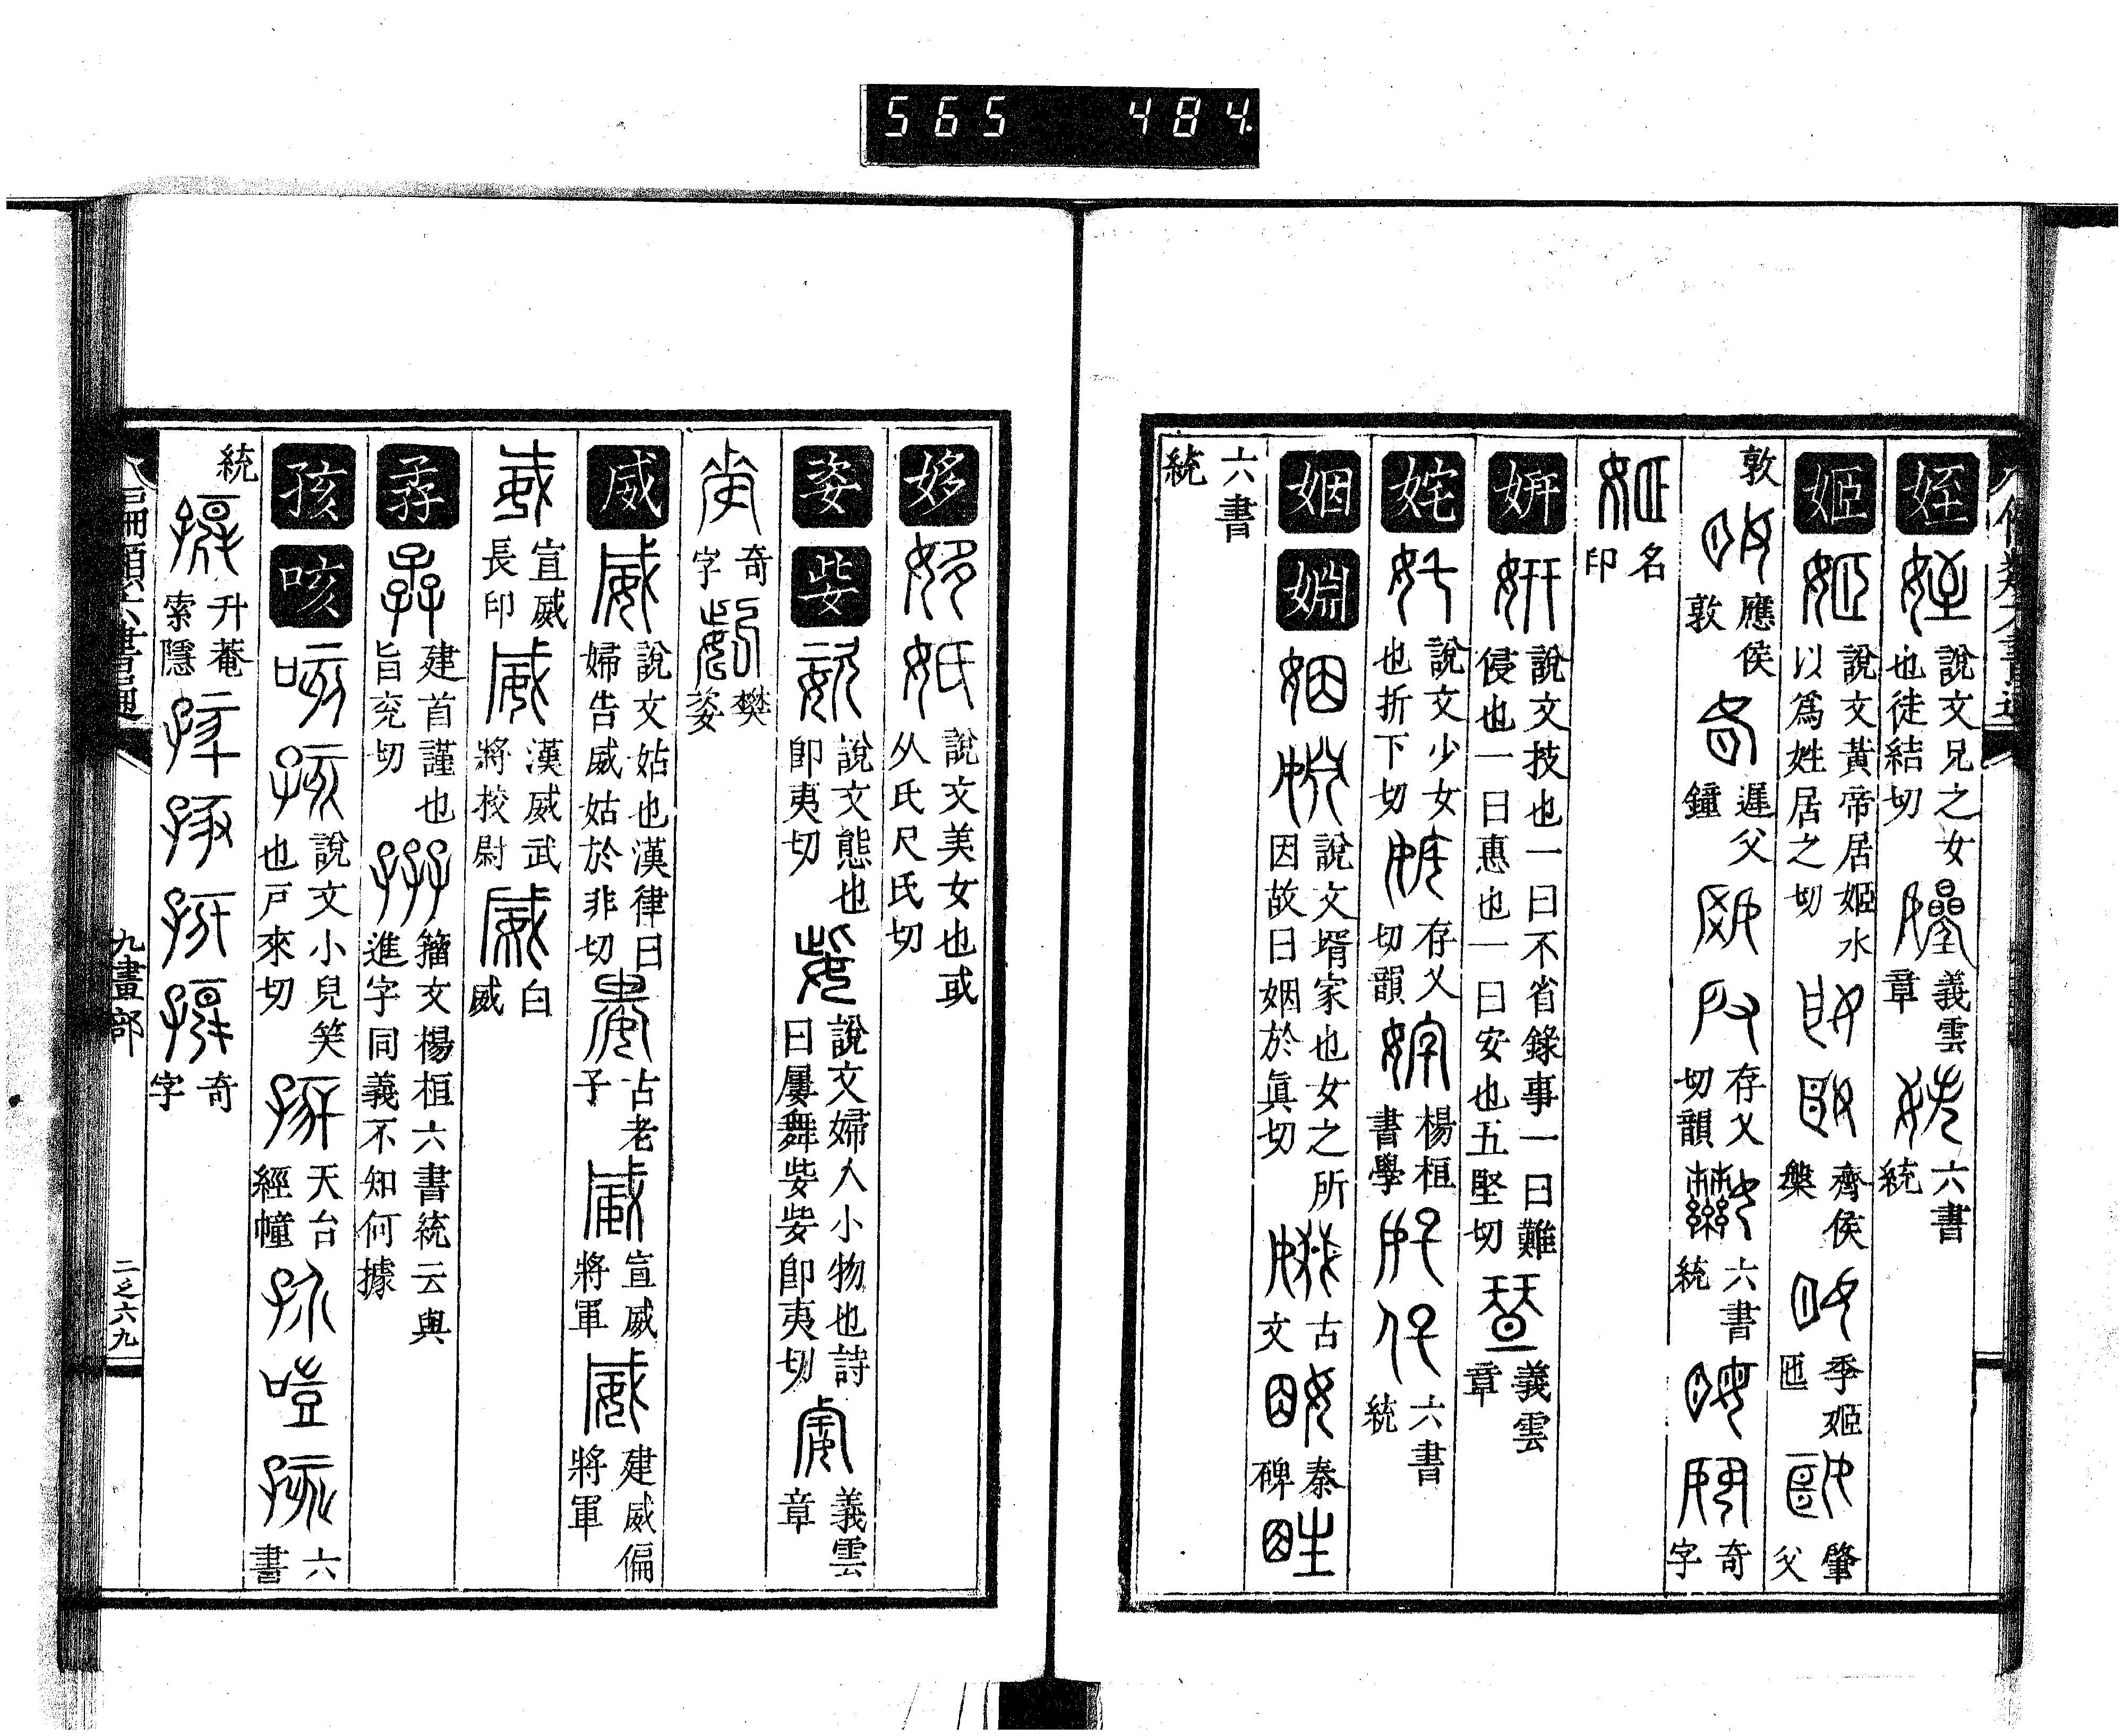 565 484
姪 說文兄之女也徒結切 義雲章 六書統
姬 說文黃帝居姬水以爲姓居之切 齊侯槃 季姬匜 肇父
敦 應侯敦 遲父鐘 存乂切韻 六書統 奇字
名印
姸 說文技也一曰不省錄事一曰難侵也一曰惠也一曰安也五堅切 義雲章
姹 說文少女也折下切 存乂切韻 楊桓書學 六書統
姻 婣 說文壻家也女之所因故曰姻於眞切 古文 秦碑
六書統
姼 說文美女也或从氏尺氏切
姿 姕 說文態也卽夷切 說文婦人小物也詩曰屢舞姕姕卽夷切 義雲章
奇字 樊姿
威 說文姑也漢律曰婦告威姑於非切 古老子 宣威將軍 建威偏將軍
宣威長印 漢威武將校尉 白威
孨 建首謹也旨兖切 籀文楊桓六書統云與進字同義不知何據
孩 咳 說文小兒笑也戶來切 天台經幢 六書
統 升菴索隱 奇字
九畫部
二之六九